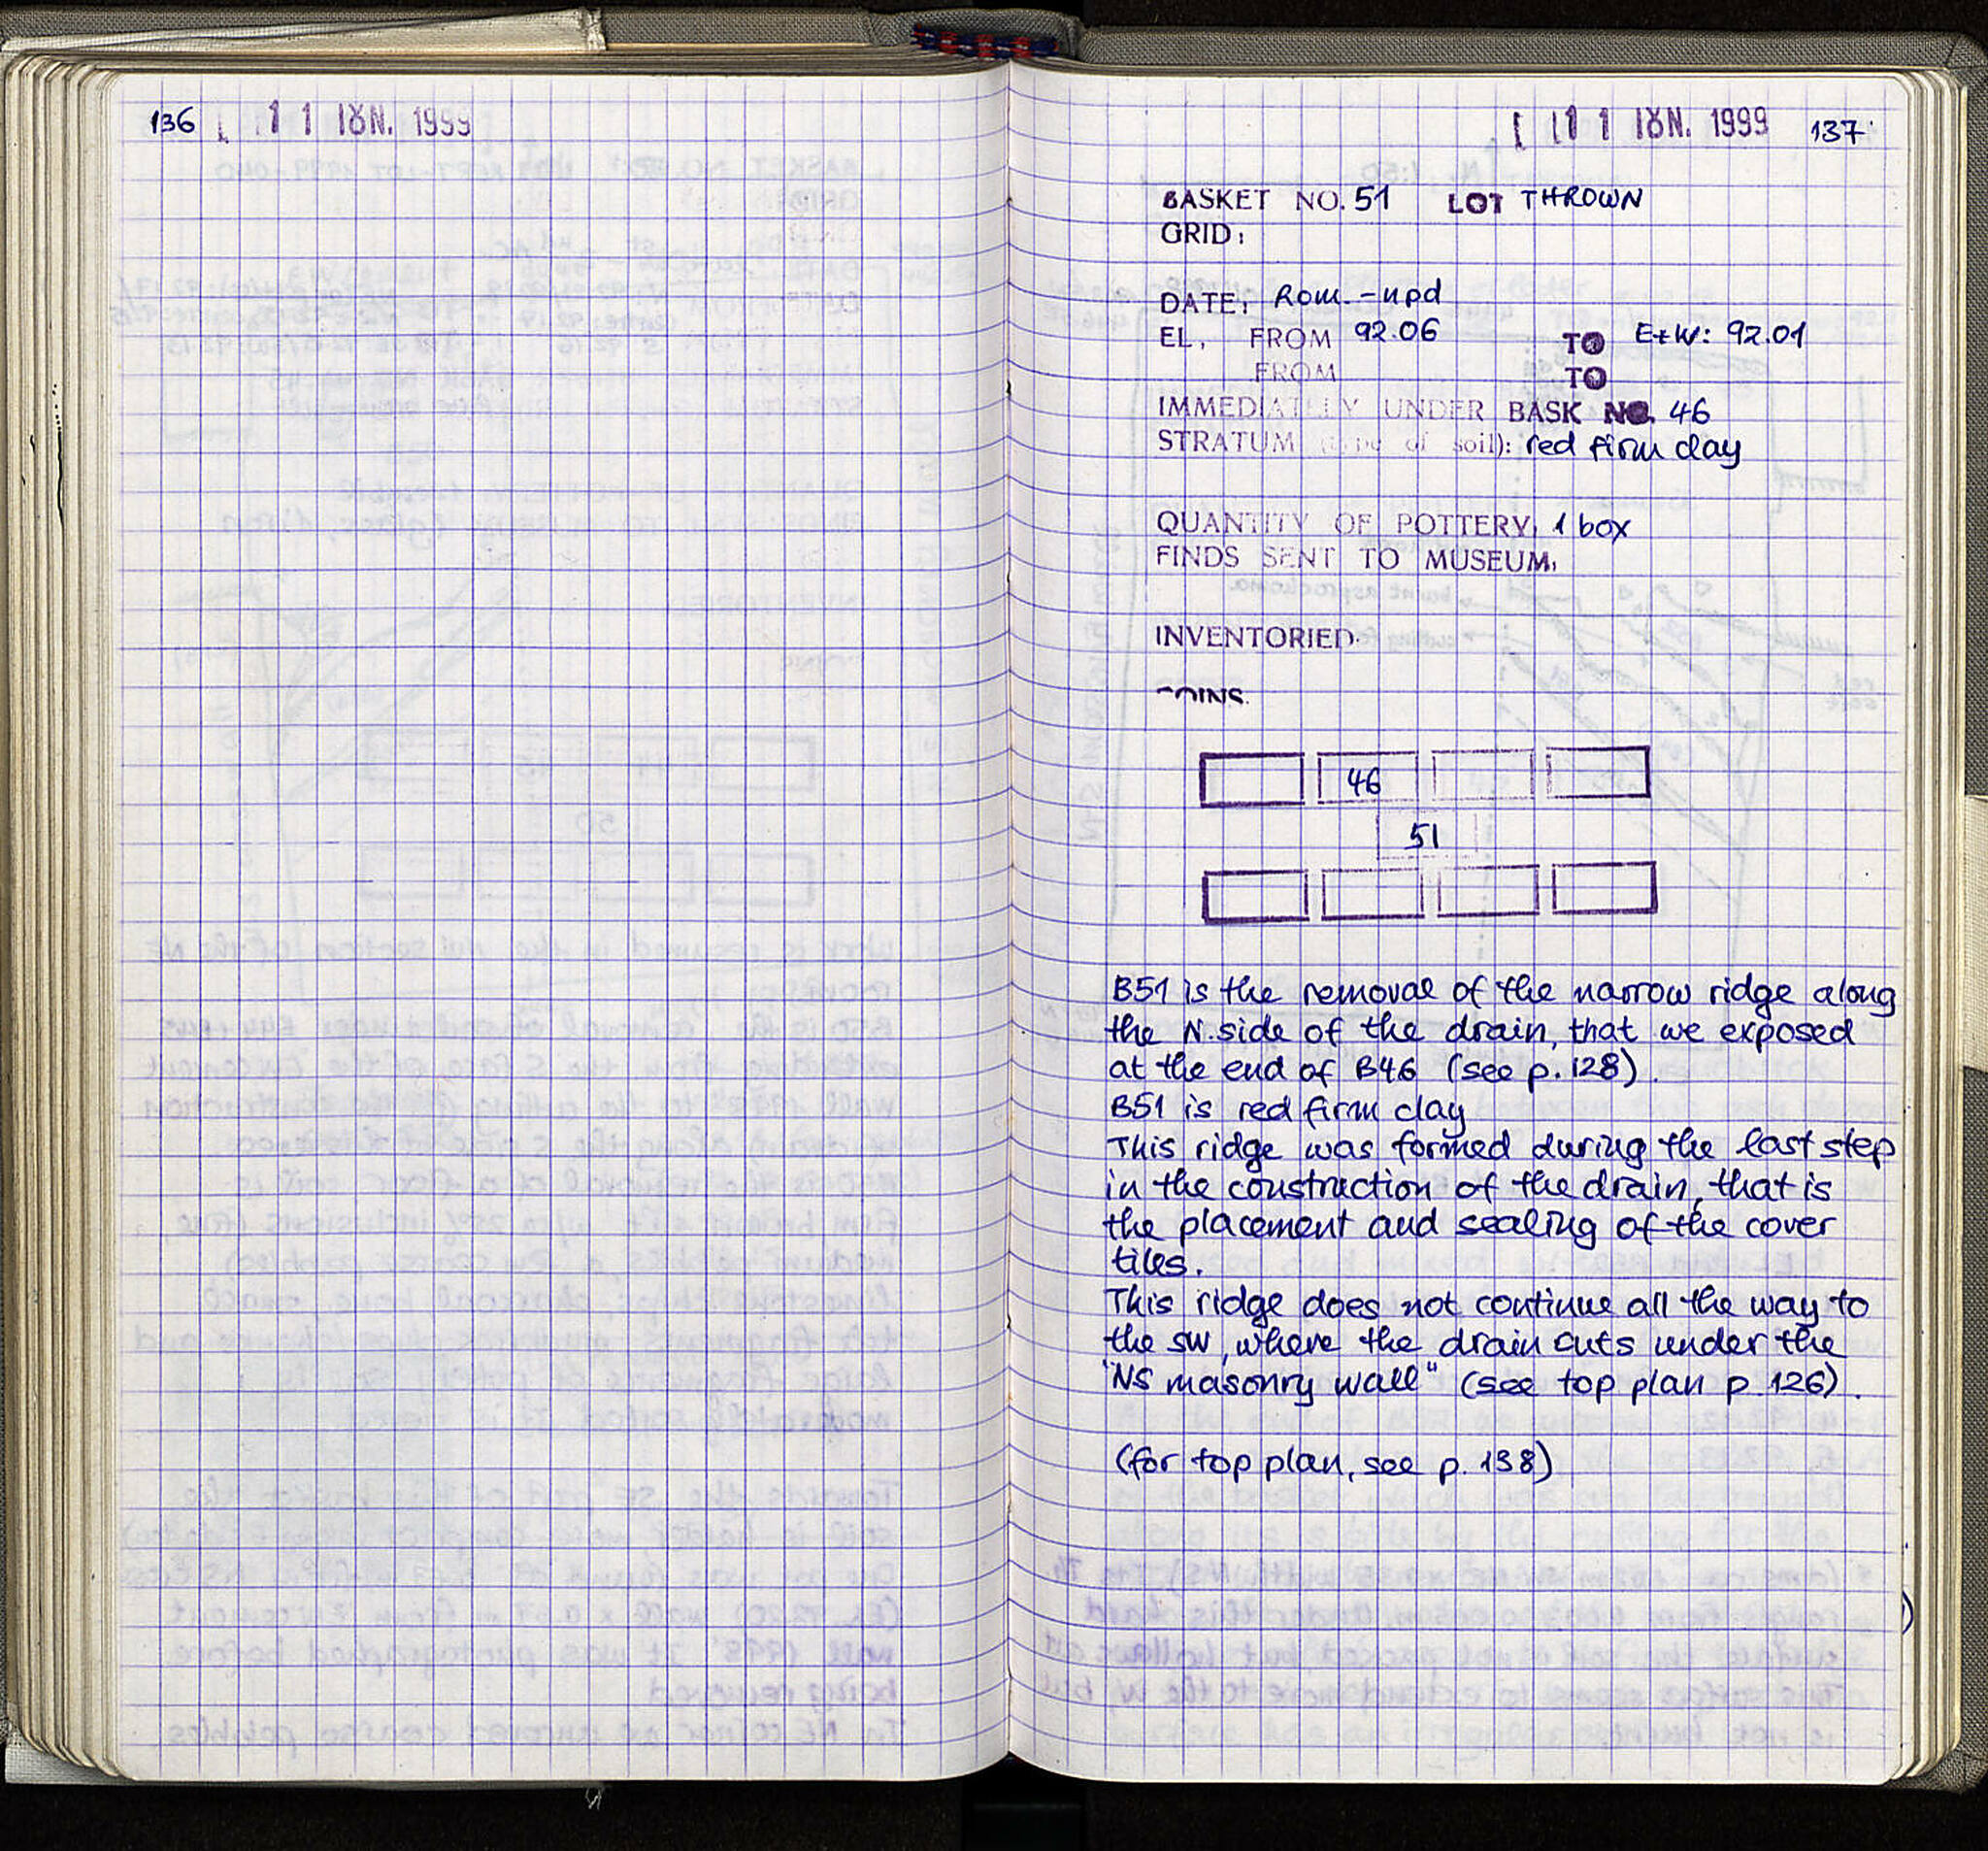 136 11 ΙΟΥΝ. 1999
11 ΙΟΥΝ. 1999 137
BASKET NO. 51 LOT THROWN
GRID:
DATE: Rom. - npd
EL. FROM 92.06 TO E+W: 92.01
FROM TO
IMMEDIATELY UNDER BASK NO. 46
STRATUM (type of soil): red firm clay
QUANTITY OF POTTERY: 1 box
FINDS SENT TO MUSEUM:
INVENTORIED:
COINS:
46
51
B51 is the removal of the narrow ridge along
the N. side of the drain, that we exposed
at the end of B46 (see p. 128).
B51 is red firm clay
This ridge was formed during the last step
in the construction of the drain, that is
the placement and sealing of the cover
tiles.
This ridge does not continue all the way to
the SW, where the drain cuts under the
"NS masonry wall" (see top plan p. 126).
(for top plan, see p. 138)